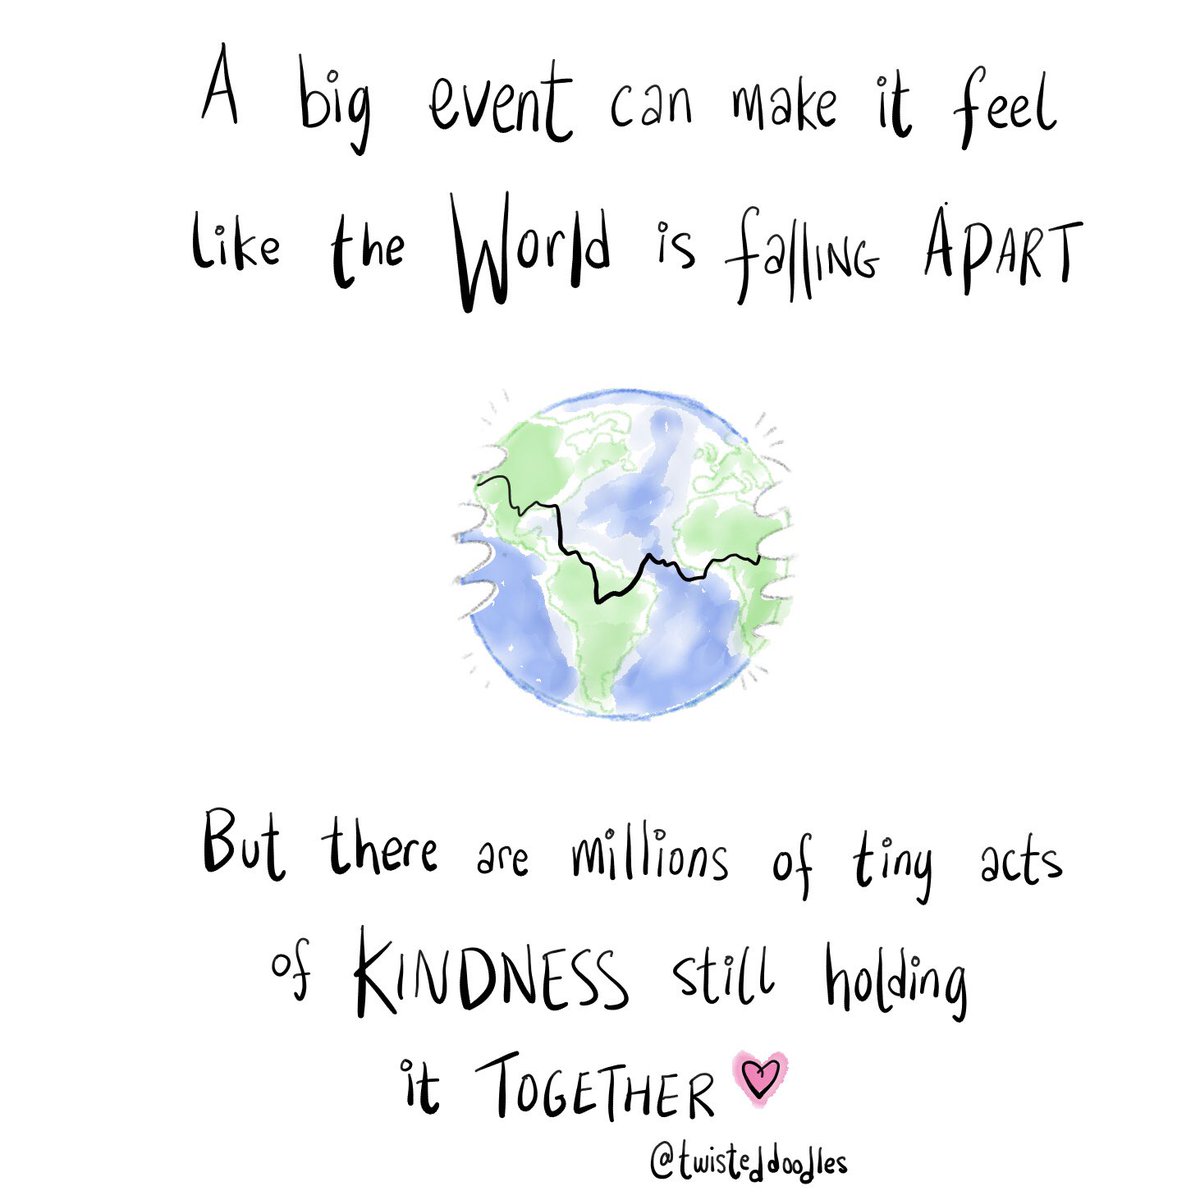 A big event can make it feel
like the World is fallING APART
But there are millions of tiny acts
of KINDNESS still holding
it TOGETHER
@twisteddoodles